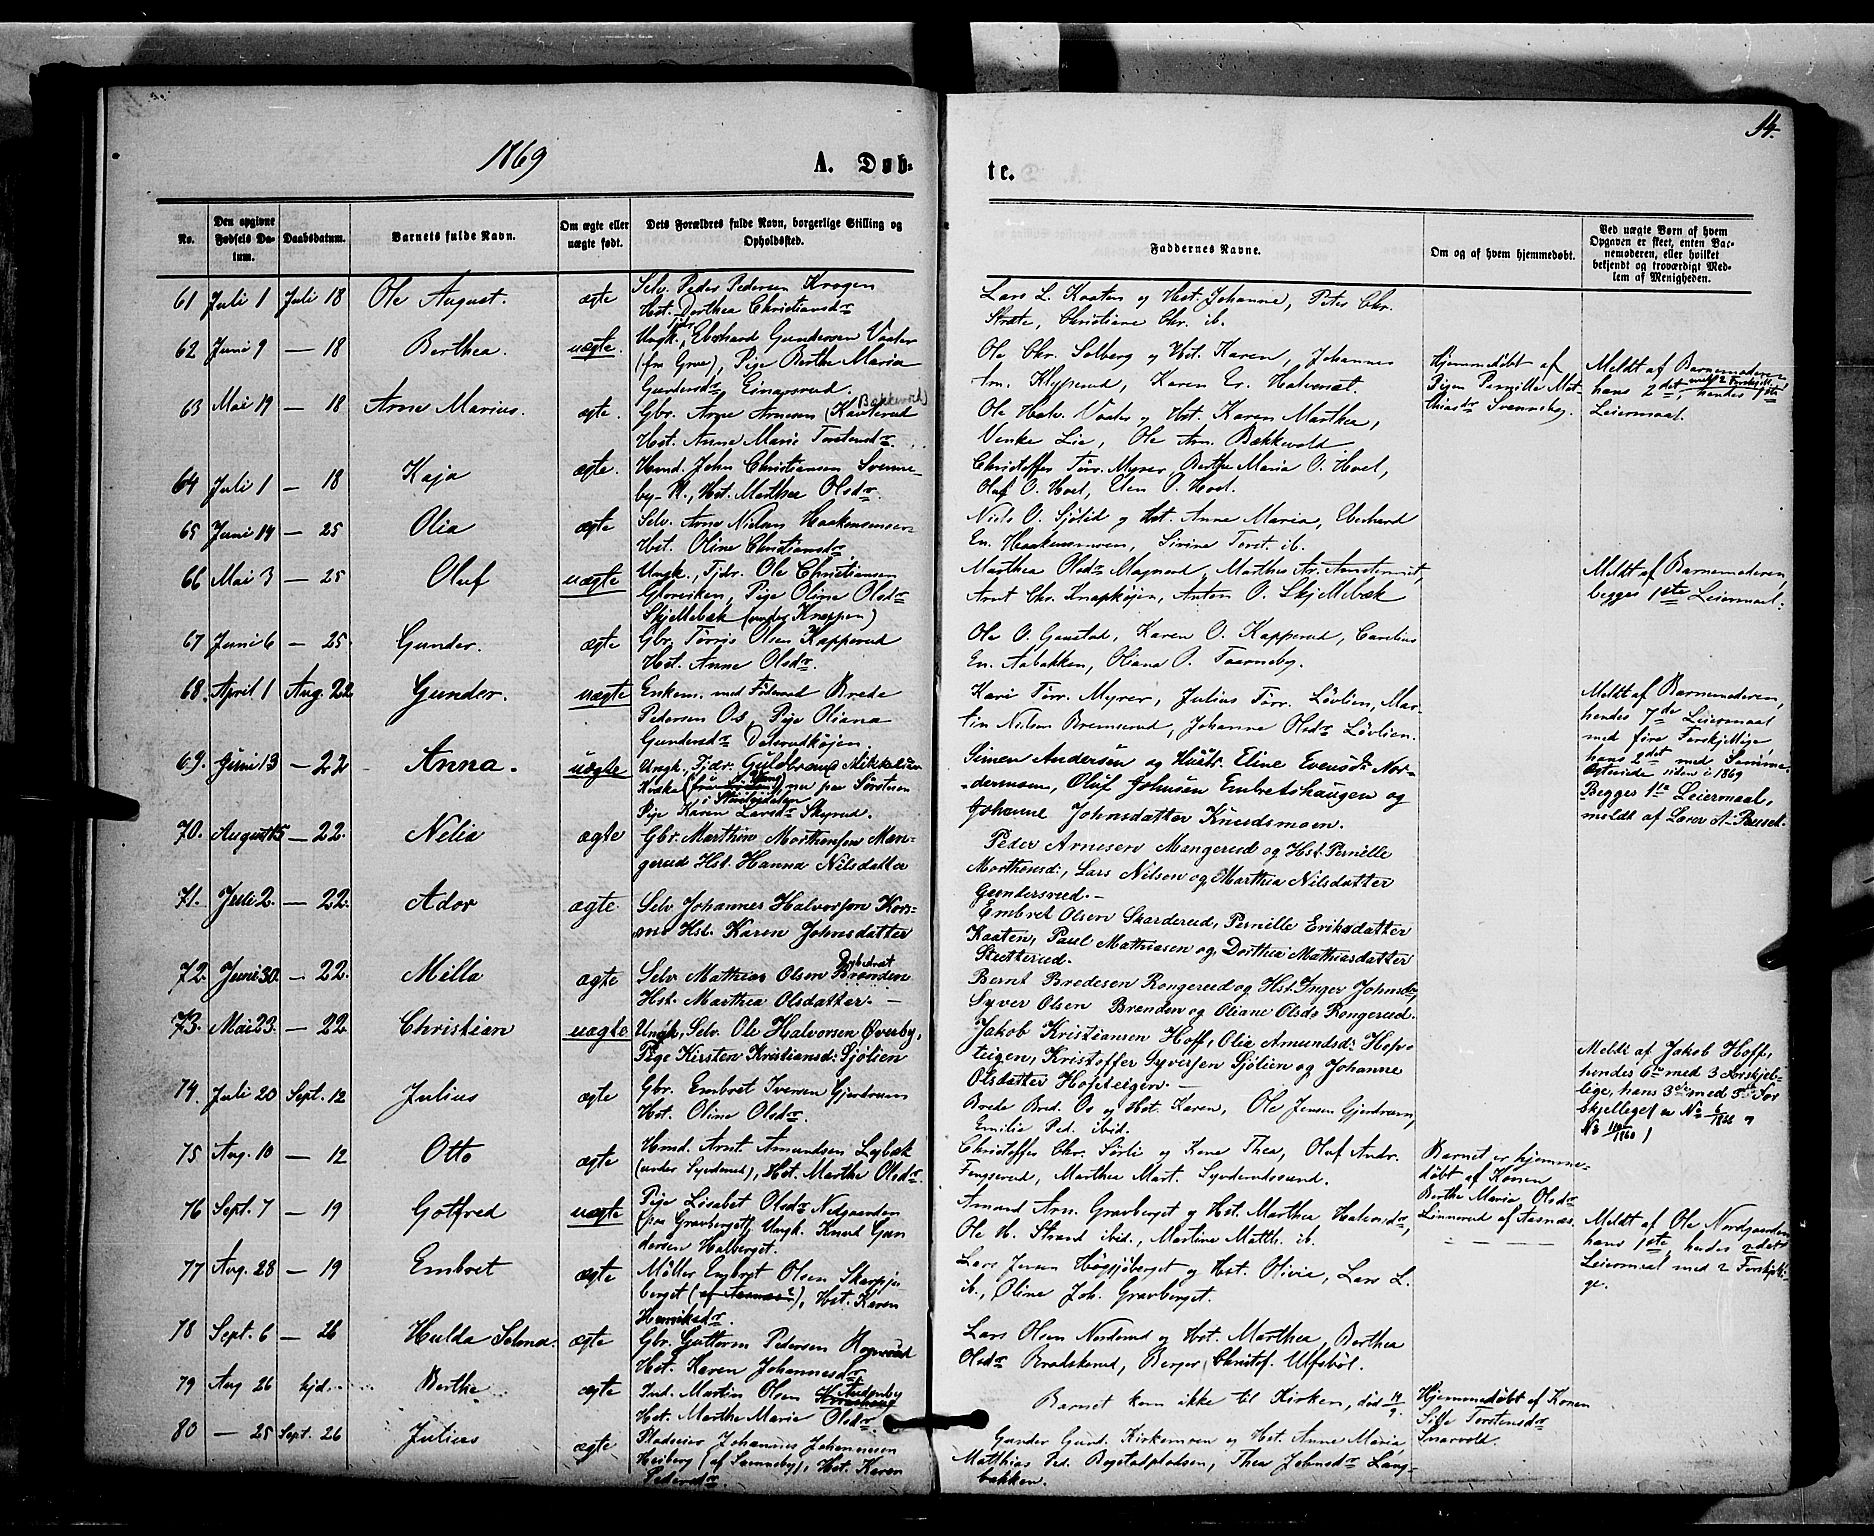 1869
A. Døb-
te.
14.
No.
Den opgivne Fødsels Da-tum.
Daabsdatum.
Barnets fulde Navn.
Om ægte eller uægte født.
Dets Forældres fulde Navn, borgerlige Stilling og Opholdssted.
Faddernes Navne.
Om og af hvem hjemmedøbt.
Ved uægte Børn af hvem Opgaven er skeet, enten Bar-nemoderen, eller hvilket bekjendt og troværdigt Med-lem af Menigheden.
61 Juli 1 Juli 18 Ole August. ægte
Selv. Peder Pedersen Krogen
Hst. Dorthea Christiansdr
Lars L. Kaaten og Hst. Johanne, Peter Chr.
Stræte, Christiane Chr. ib.
62 Juni 9 — 18 Berthea. uægte.
Ungk., Tjdr. Eberhard Gundersen Vaaler
(fra Grue), Pige Berthe Maria
Gundersdr Einarsrud.
Ole Chr. Solberg og Hst. Karen, Johannes
Am. Klyprud, Karen Er. Halvorsæt.
Hjemmedøbt af
Pigen Pernille Mat-
thiasdr Svenneby.
Meldt af Barnemoderen
hans 2det med 2 Forskjell., hendes 1ste
Leiermaal.
63 Mai 19 — 18 Arne Marius. ægte.
Gbr. Arne Arnesen (Kavlerud Bakkevold)
Hst. Anne Marie Torstensdr.
Ole Halv. Vaaler og Hst. Karen Marthea,
Venke Lie, Ole Arn. Bakkevold
64 Juli 1 — 18 Kaja ægte.
Hmd. John Christiansen Svenne-
by N., Hst. Marthea Olsdr.
Christoffer Torr. Myrer, Berthe Maria O. Hoel,
Oluf O. Hoel, Elen O. Hoel.
65 Juni 14 — 25 Olia ægte
Selv. Arne Nielsen Haakensmoen
Hst. Oline Christiansdr.
Niels O. Sjølid og Hst. Anne Maria, Eberhard
En. Haakensmoen, Sirine Torst. ib.
66 Mai 3 — 25 Oluf uægte
Ungk., Tjdr. Ole Christiansen
Glorviken, Pige Oline Olsdr
Skjellebæk (under Knappen)
Marthea Olsdr Magnord, Marthea Ar.
Arnt Chr. Knapkøjen, Anton O. Skjellebæk
Meldt af Barnemoderen,
begges 1ste Leiermaal.
67 Juni 6 — 25 Gunder. ægte
Gbr. Tørris Olsen Kapperud
Hst. Anne Olsdr.
Ole O. Gaustad, Karen O. Kapperud, Carelius
En. Aabakken, Oliana O. Taarneby.
68. April 1 Aug. 22 Gunder. uægte
Enkem. med Føderaad Brede
Pedersen Os, Pige Oliana
Gundersdr Dalsrudkøjen.
Kari Torr. Myrer, Julius Torr. Løvlien, Mar-
tin Nielsen Bremerud, Johanne Olsdr Løvlien.
Meldt af Barnemoderen,
hendes 7de Leiermaal
med fire Forskjellige,
hans 2det med Samme.
Egteviede siden i 1869
69. Juni 13 — 22 Anna. uægte
Ungk., Tjdr. Guldbrand Mikkelsen
Pige Karen Larsdr Skyrud.
Simen Andersen og Hustr. Eline Evensd: Nor-
dermoen, Oluf Johnsen Embretshaugen og
Johanne Johnsdatter Knudsmoen.
Begges 1te Leiermaal,
meldt af Lærer
70. August 5 — 22. Nelia ægte
Gbr. Marthin Morthensen Man-
gerud Hst. Hanna Nilsdatter
Peder Arnesen Mangerud og Hst. Pernille
Morthensd:, Lars Nilsen og Marthea Nilsdatter
Gundersrud.—
71. Juli 2. — 22. Ador ægte
Selv. Johannes Halvorsen Kors-
mo Hst. Karen Johnsdatter
Embret Olsen Skarderud, Pernille Eriksdatter
Kaaten, Paul Mathiasen og Dorthea Mathiasdatter
Skutterud.
72. Juni 30. — 22. Milla ægte
Selv. Mathias Olsen Branden
Hst. Marthea Olsdatter. —
Bernt Bredesen Rongerud og Hst. Inger Johnsdr,
Syver Olsen Branden og Oliane Olsd: Rongerud.
73. Mai 23. — 22. Christian uægte
Ungk., Selv. Ole Halvorsen Øverby,
Pige Kirsten Kristiansd: Sjølien
Jakob Kristiansen Hoff, Olia Amundsd: Hofs-
teigen, Kristoffer Syversen Sjølien og Johanne
Olsdatter Hofsteigen. —
Meldt af Jakob Hoff,
hendes 6te med 3 Forskjel-
lige, hans 3de med 3de For-
skjellige
74. Juli 20 Sept. 12 Julius ægte
Gbr. Embret Iversen Gjerdrum
Hst. Oline Olsdr.
Brede Bred. Os og Hst. Karen, Ole Jensen Gjerdrum,
Emilie Ped. ibid.
75 Aug. 10 — 12 Otto ægte
Hmd. Arnt Amundsen Løbæk
(under Synderud), Hst. Marthe Olsdr.
Christoffer Chr. Sørli og Kone Thea, Oluf Andr.
Fengserud, Marthea Mart. Synderudssund.
Barnet er hjemme-
døbt af Konen
Berthe Maria Olsdr
Linnerud af Aasnæs.
76 Sept. 7 — 19 Gotfred uægte
Pige Lisabet Olsdr Nedgaarden
(paa Gravberget), Ungk. Knud Gun-
dersen Halberget.
Amund Arn. Gravberget og Hst. Marthea Halvorsdr,
Ole H. Strand ibid., Martine Matth. ib.
Meldt af Ole Nordgaarden
hans 1ste, hendes 2det
Leiermaal med 2 Forskjelli-
ge.
77 Aug. 28 — 19 Embret ægte
Møller Embret Olsen Skarpja-
berget (af Aasnæs?), Hst. Karen
Henriksdr.
Lars Jensen Høgsjøberget og Hst. Olivia, Lars L.
ib., Oline Joh. Gravberget.
78 Sept. 6 — 26 Hulda Selma. ægte
Gbr. Guttorm Pedersen Rognerud
Hst. Karen Johannesdr
Lars Olsen Norderud og Hst. Marthea, Berthea
Olsdr Braskerud, Berger Christof. Ulfsbøl.
79 Aug 26 hjd. Berthe ægte
Ind. Martin Olsen
Hst. Marthe Maria Olsdr
Barnet kom ikke til Kirken, død 14/9.
Hjemmedøbt af Konen
Sille Torstensdr
Snarvold.
80 — 25 Sept. 26 Julius ægte
Pladseier Johannes Johannesen
Heiberg (af Sænneby), Hst. Karen
Pedersdr.
Gunder Gund. Kirkemoen og Hst. Anne Maria,
Matthias Ped. Rogstadpladsen, Thea Johnsdr Lang-
bakken.